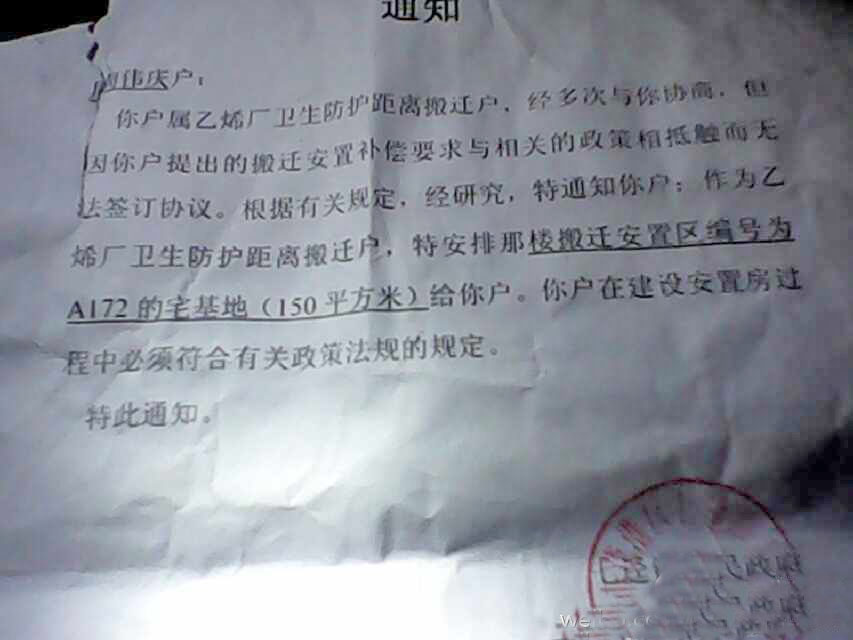 通知
伟庆户：
你户属乙烯厂卫生防护距离搬迁户，经多次与你协商，但
因你户提出的搬迁安置补偿要求与相关的政策相抵触而无
法签订协议。根据有关规定，经研究，特通知你户：作为乙
烯厂卫生防护距离搬迁户，特安排那楼搬迁安置区编号为
A172的宅基地（150平方米）给你户。你户在建设安置房过
程中必须符合有关政策法规的规定。
特此通知。